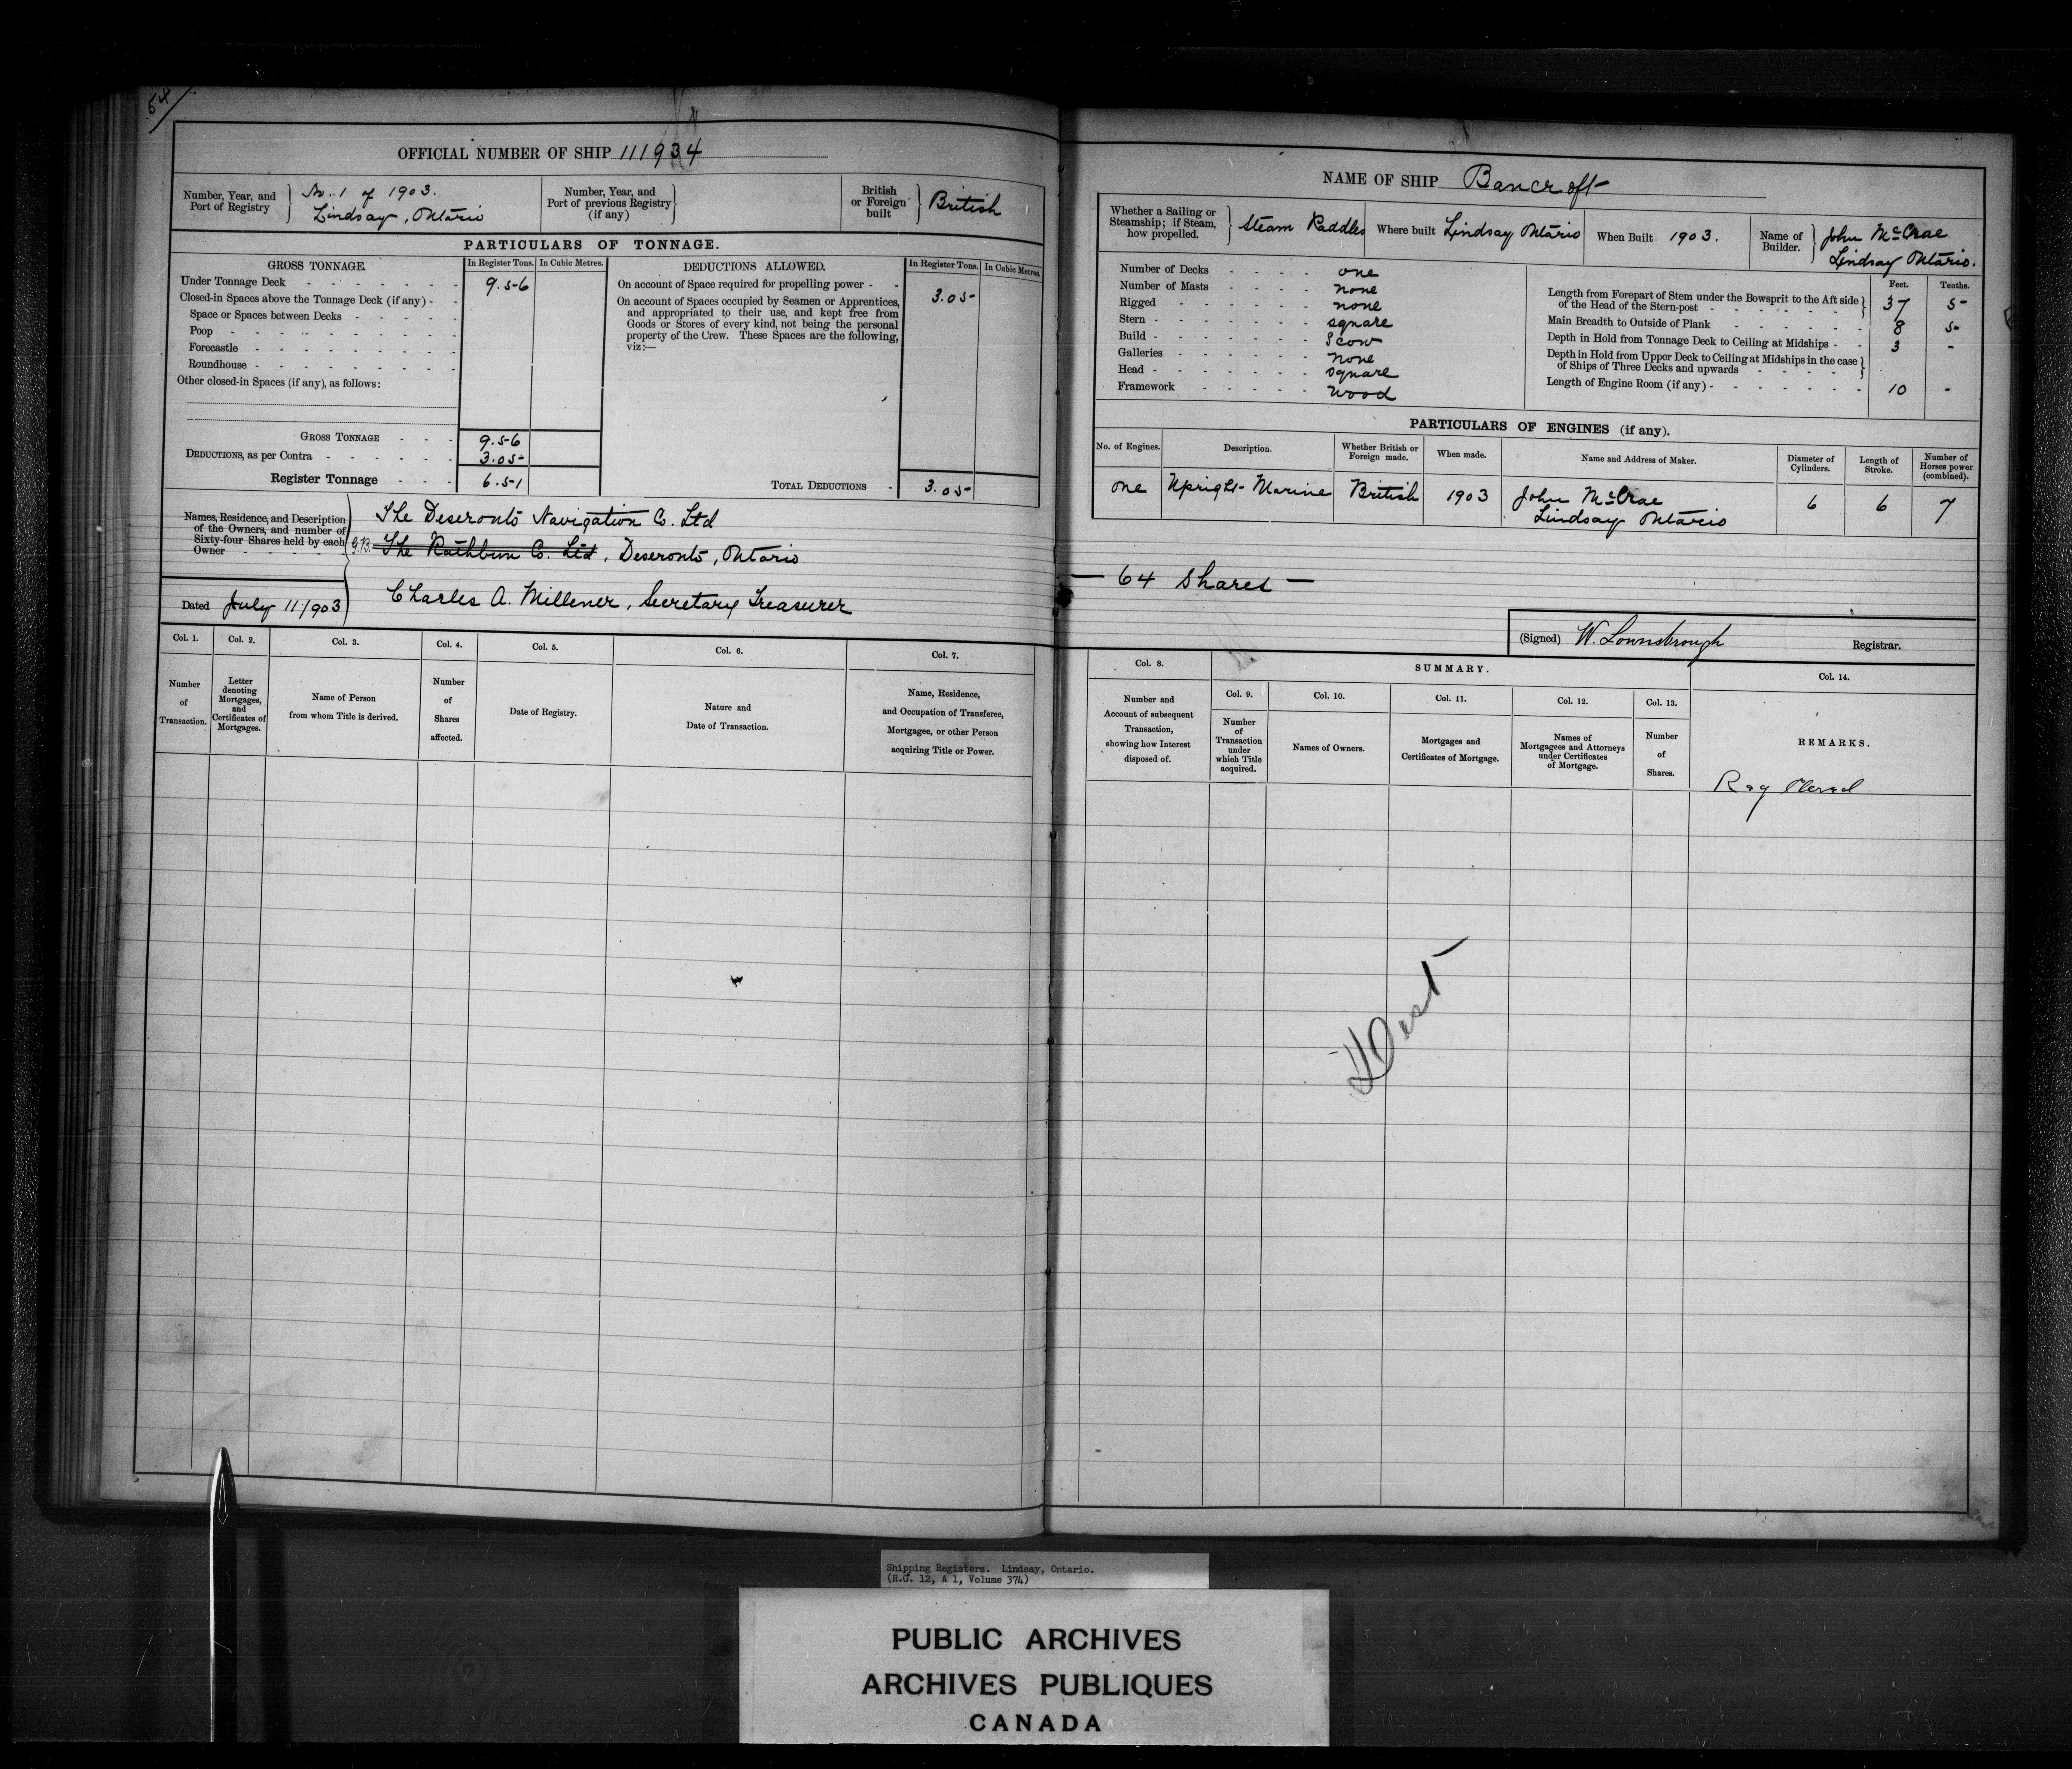 54
OFFICIAL NUMBER OF SHIP 111934
Number, Year, and Port of Registry
No. 1 of 1903.
Lindsay, Ontario
Number, Year, and Port of previous Registry (if any)
British or Foreign built
British
PARTICULARS OF TONNAGE.
GROSS TONNAGE. In Register Tons. In Cubic Metres.
Under Tonnage Deck 9.56
Closed-in Spaces above the Tonnage Deck (if any)
Space or Spaces between Decks
Poop
Forecastle
Roundhouse
Other closed-in Spaces (if any), as follows:
GROSS TONNAGE 9.56
DEDUCTIONS, as per Contra 3.05
Register Tonnage 6.51
DEDUCTIONS ALLOWED. In Register Tons. In Cubic Metres.
On account of Space required for propelling power 3.05
On account of Spaces occupied by Seamen or Apprentices,
and appropriated to their use, and kept free from
Goods or Stores of every kind, not being the personal
property of the Crew. These Spaces are the following,
viz:—
TOTAL DEDUCTIONS 3.05
Names, Residence, and Description
of the Owners, and number of
Sixty-four Shares held by each
Owner
The Deseronto Navigation Co. Ltd
The Rathbun Co. Ltd, Deseronto, Ontario
Charles A. Millener, Secretary Treasurer
Dated July 11/903
Col. 1. Col. 2. Col. 3. Col. 4. Col. 5. Col. 6. Col. 7.
Number of Transaction.
Letter denoting Mortgages, and Certificates of Mortgages.
Name of Person from whom Title is derived.
Number of Shares affected.
Date of Registry.
Nature and Date of Transaction.
Name, Residence, and Occupation of Transferee, Mortgagee, or other Person acquiring Title or Power.
NAME OF SHIP Bancroft
Whether a Sailing or Steamship; if Steam, how propelled.
Steam Paddles
Where built Lindsay Ontario
When Built 1903.
Name of Builder.
John McCrae
Lindsay Ontario.
Number of Decks one
Number of Masts none
Rigged none
Stern square
Build Scow
Galleries none
Head square
Framework wood
Feet. Tenths.
Length from Forepart of Stem under the Bowsprit to the Aft side of the Head of the Stern-post 37 5
Main Breadth to Outside of Plank 8 5
Depth in Hold from Tonnage Deck to Ceiling at Midships 3 -
Depth in Hold from Upper Deck to Ceiling at Midships in the case of Ships of Three Decks and upwards
Length of Engine Room (if any) 10 -
PARTICULARS OF ENGINES (if any).
No. of Engines. Description. Whether British or Foreign made. When made. Name and Address of Maker. Diameter of Cylinders. Length of Stroke. Number of Horses power (combined).
one Upright Marine British 1903 John McCrae 6 6 7
Lindsay Ontario
— 64 Shares —
(Signed) W. Lownsbrough Registrar.
Col. 8.
Number and Account of subsequent Transaction, showing how Interest disposed of.
SUMMARY.
Col. 9. Col. 10. Col. 11. Col. 12. Col. 13.
Number of Transaction under which Title acquired.
Names of Owners.
Mortgages and Certificates of Mortgage.
Names of Mortgagees and Attorneys under Certificates of Mortgage.
Number of Shares.
Col. 14.
REMARKS.
Shipping Registers. Lindsay, Ontario.
(R.G. 12, A 1, Volume 374)
PUBLIC ARCHIVES
ARCHIVES PUBLIQUES
CANADA